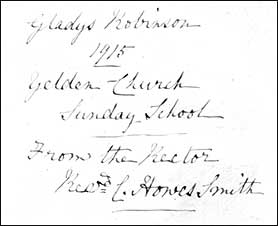 Gladys Robinson
1915
Yelden Church
Sunday School
From the Rector
Revd C. Howes Smith